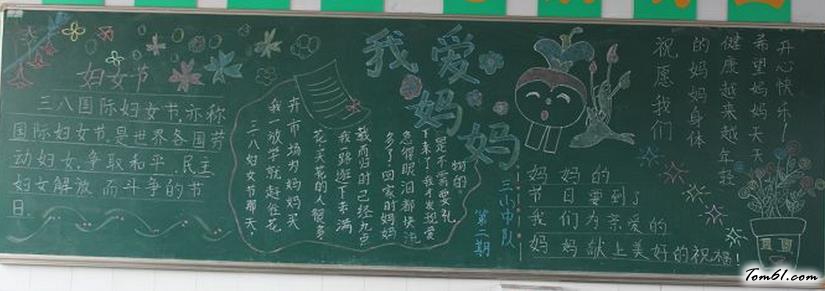 妇女节
三八国际妇女节,亦称
国际妇女节,是世界各国劳
动妇女争取和平,民主
妇女解放而斗争的节
日.
三八妇女节那天,
我一放学就赶往花
卉市场为妈妈买
花,买花的人很多
我一路逛下来满
载而归时已经九点
多了,回家时妈妈
急得眼泪都快流
下来了,我才发现爱
是不需要礼
物的
我爱妈妈
三小中队
第二期
祝愿我们
的妈妈身体
健康越来越年轻
希望妈妈天天
开心快乐!
妈妈的
节日要到了
我们为亲爱的
妈妈献上美好的祝福!
Tom61.com